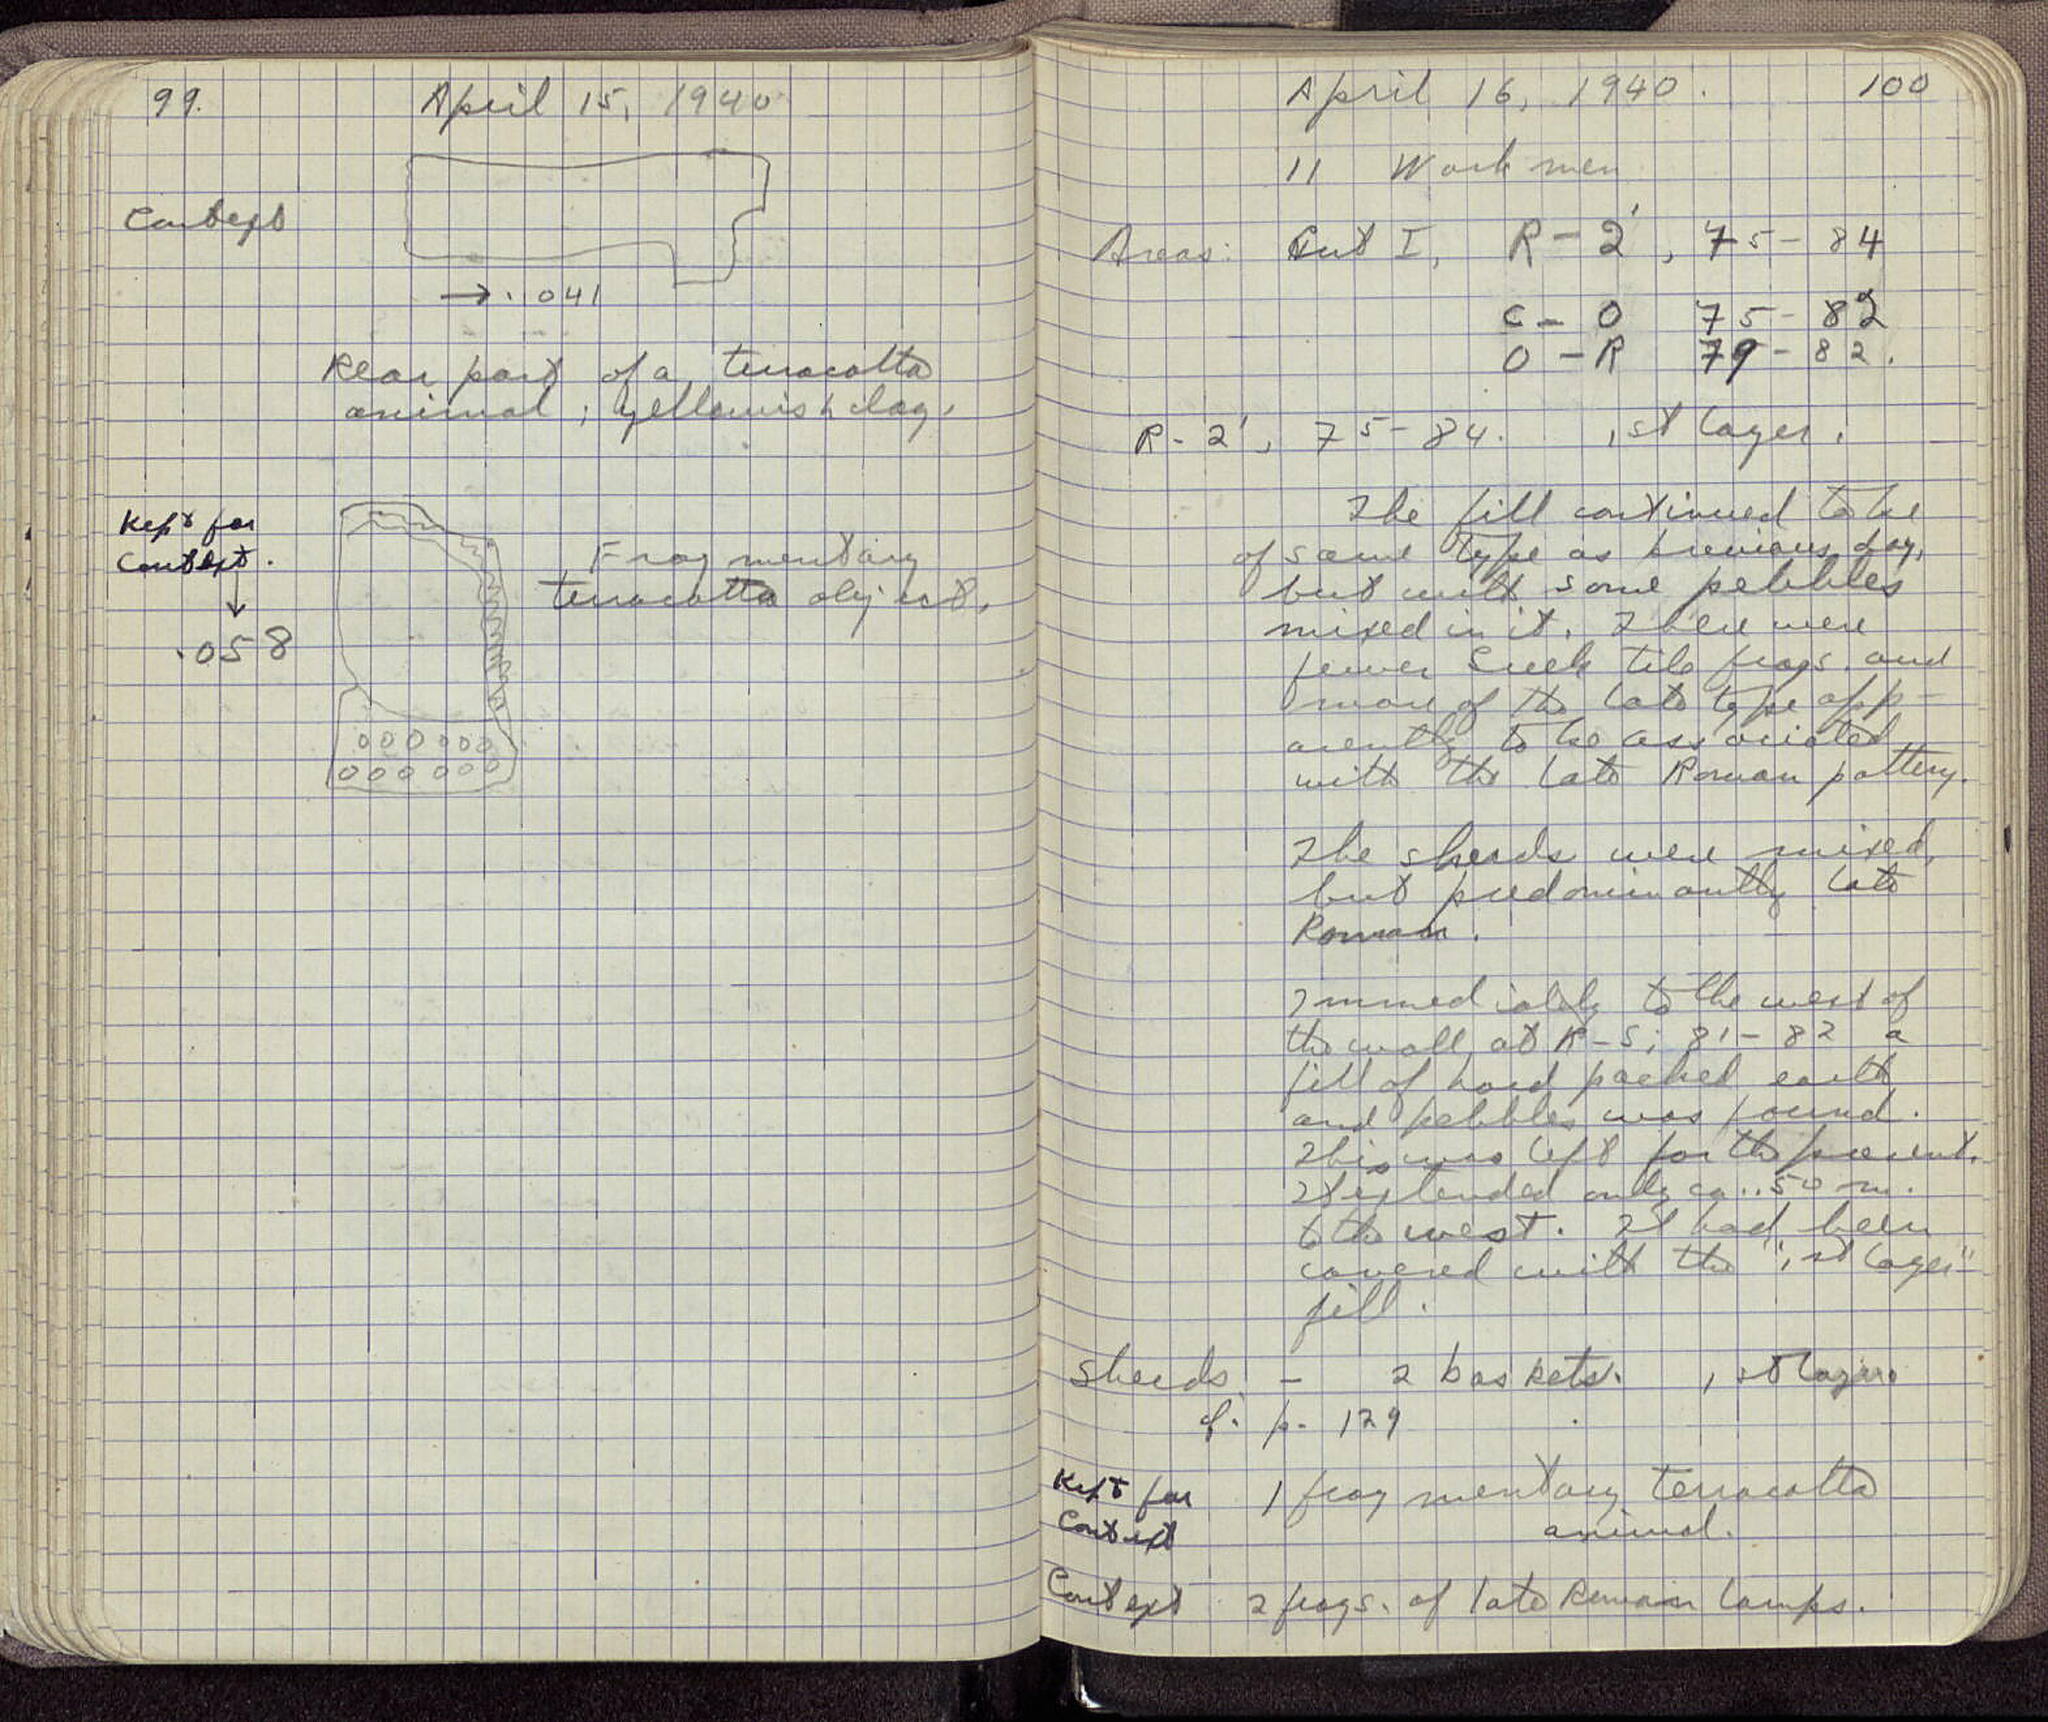 99.
April 15, 1940
Context
→ .041
Rear part of a terracotta
animal; yellowish clay.
Kept for
Context.
.058
Fragmentary
terracotta object.
April 16, 1940.
100
11 Workmen
Areas: Cut I, R-2', 75-84
C-O 75-82
O-R 79-82.
R-2', 75-84. 1st layer.
The fill continued to be
of same type as previous day,
but with some pebbles
mixed in it. There were
fewer Greek tile frags. and
more of the late type app-
arently to be associated
with the late Roman pottery.
The sherds were mixed,
but predominantly late
Roman.
Immediately to the west of
the wall at R-S; 81-82 a
fill of hard packed earth
and pebbles was found.
This was left for the present.
It extended only ca. .50 m.
to the west. It had been
covered with the "1st layer"
fill.
Sherds - 2 baskets. 1st layer.
cf. p. 129
Kept for
Context
1 fragmentary terracotta
animal.
Context 2 frags. of late Roman lamps.